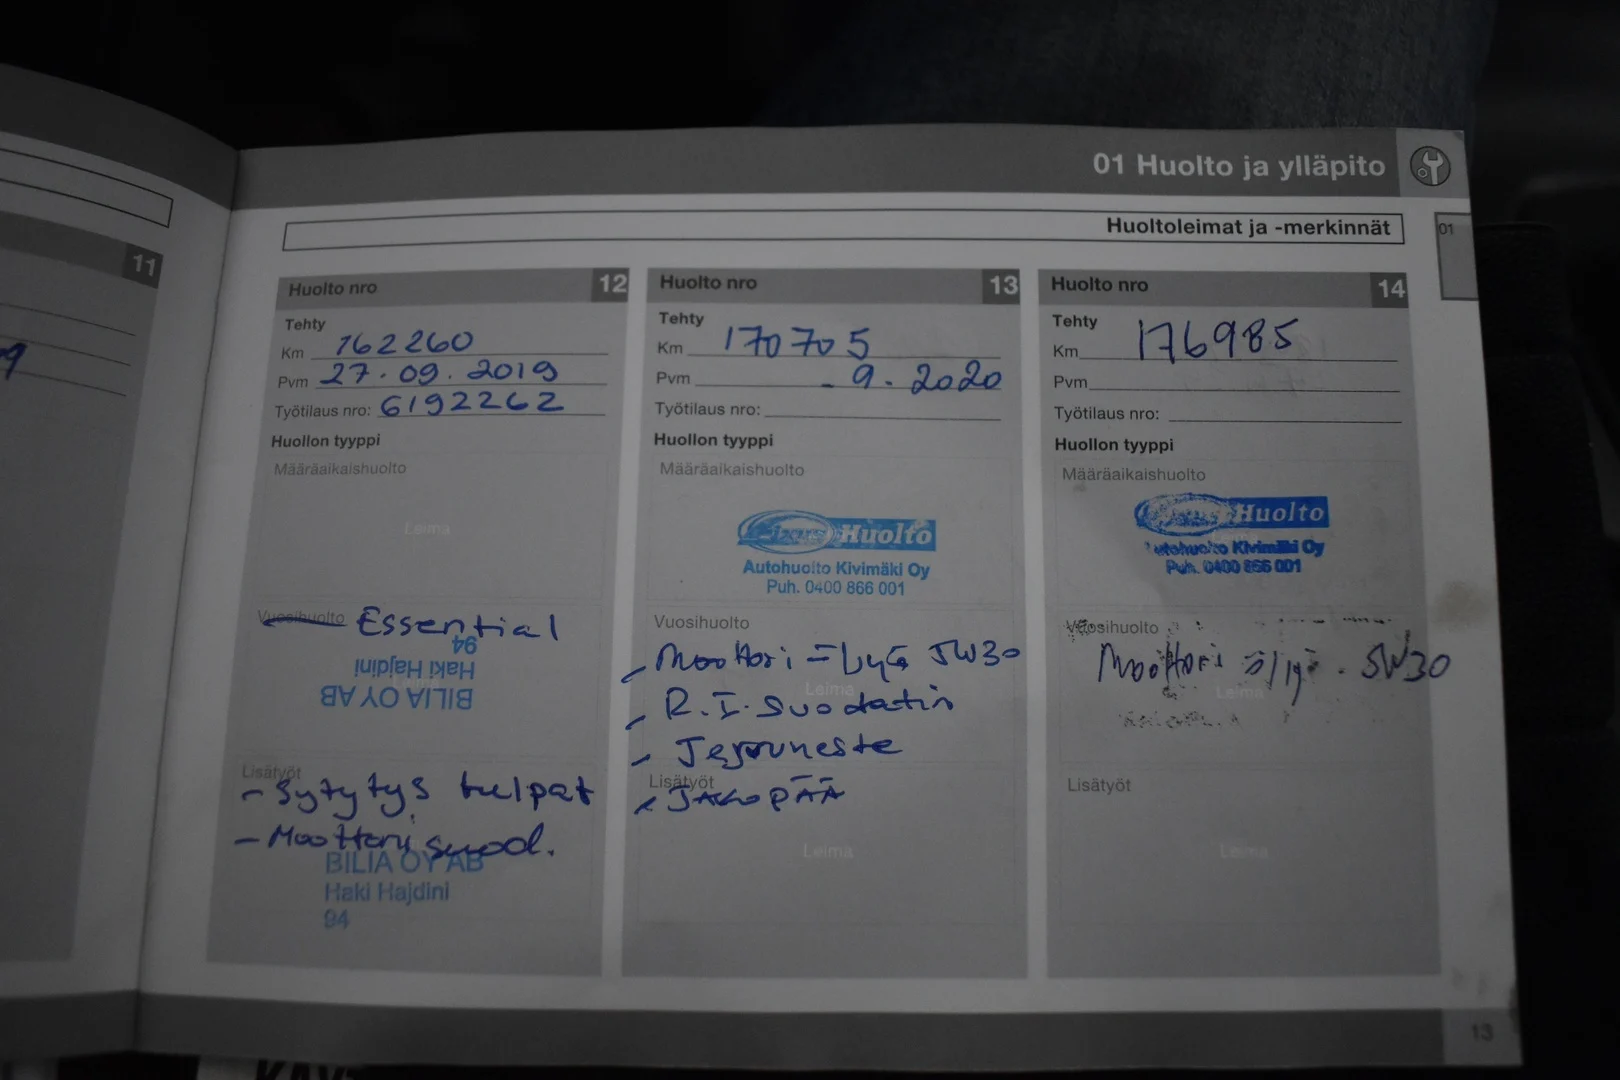 01 Huolto ja ylläpito
Huoltoleimat ja -merkinnät
01
11
Huolto nro 12
Tehty
Km 162260
Pvm 27.09.2019
Työtilaus nro: 6192262
Huollon tyyppi
Määräaikaishuolto
Leima
Vuosihuolto Essential
94
Haki Hajdini
BILIA OY AB
Leima
Lisätyöt
- Sytytys tulpat
- Moottori suod.
BILIA OY AB
Haki Hajdini
94
Huolto nro 13
Tehty
Km 170705
Pvm - 9. 2020
Työtilaus nro:
Huollon tyyppi
Määräaikaishuolto
Huolto
Autohuolto Kivimäki Oy
Puh. 0400 866 001
Vuosihuolto
- Moottori öljyä 5W30
Leima
- R.I. Suodatin
- Jarruneste
Lisätyöt
- JAKOPÄÄ
Leima
Huolto nro 14
Tehty
Km 176985
Pvm
Työtilaus nro:
Huollon tyyppi
Määräaikaishuolto
Huolto
Leima
Autohuolto Kivimäki Oy
Puh. 0400 866 001
Vuosihuolto
Moottori öljyä - 5W30
Leima
Lisätyöt
Leima
13